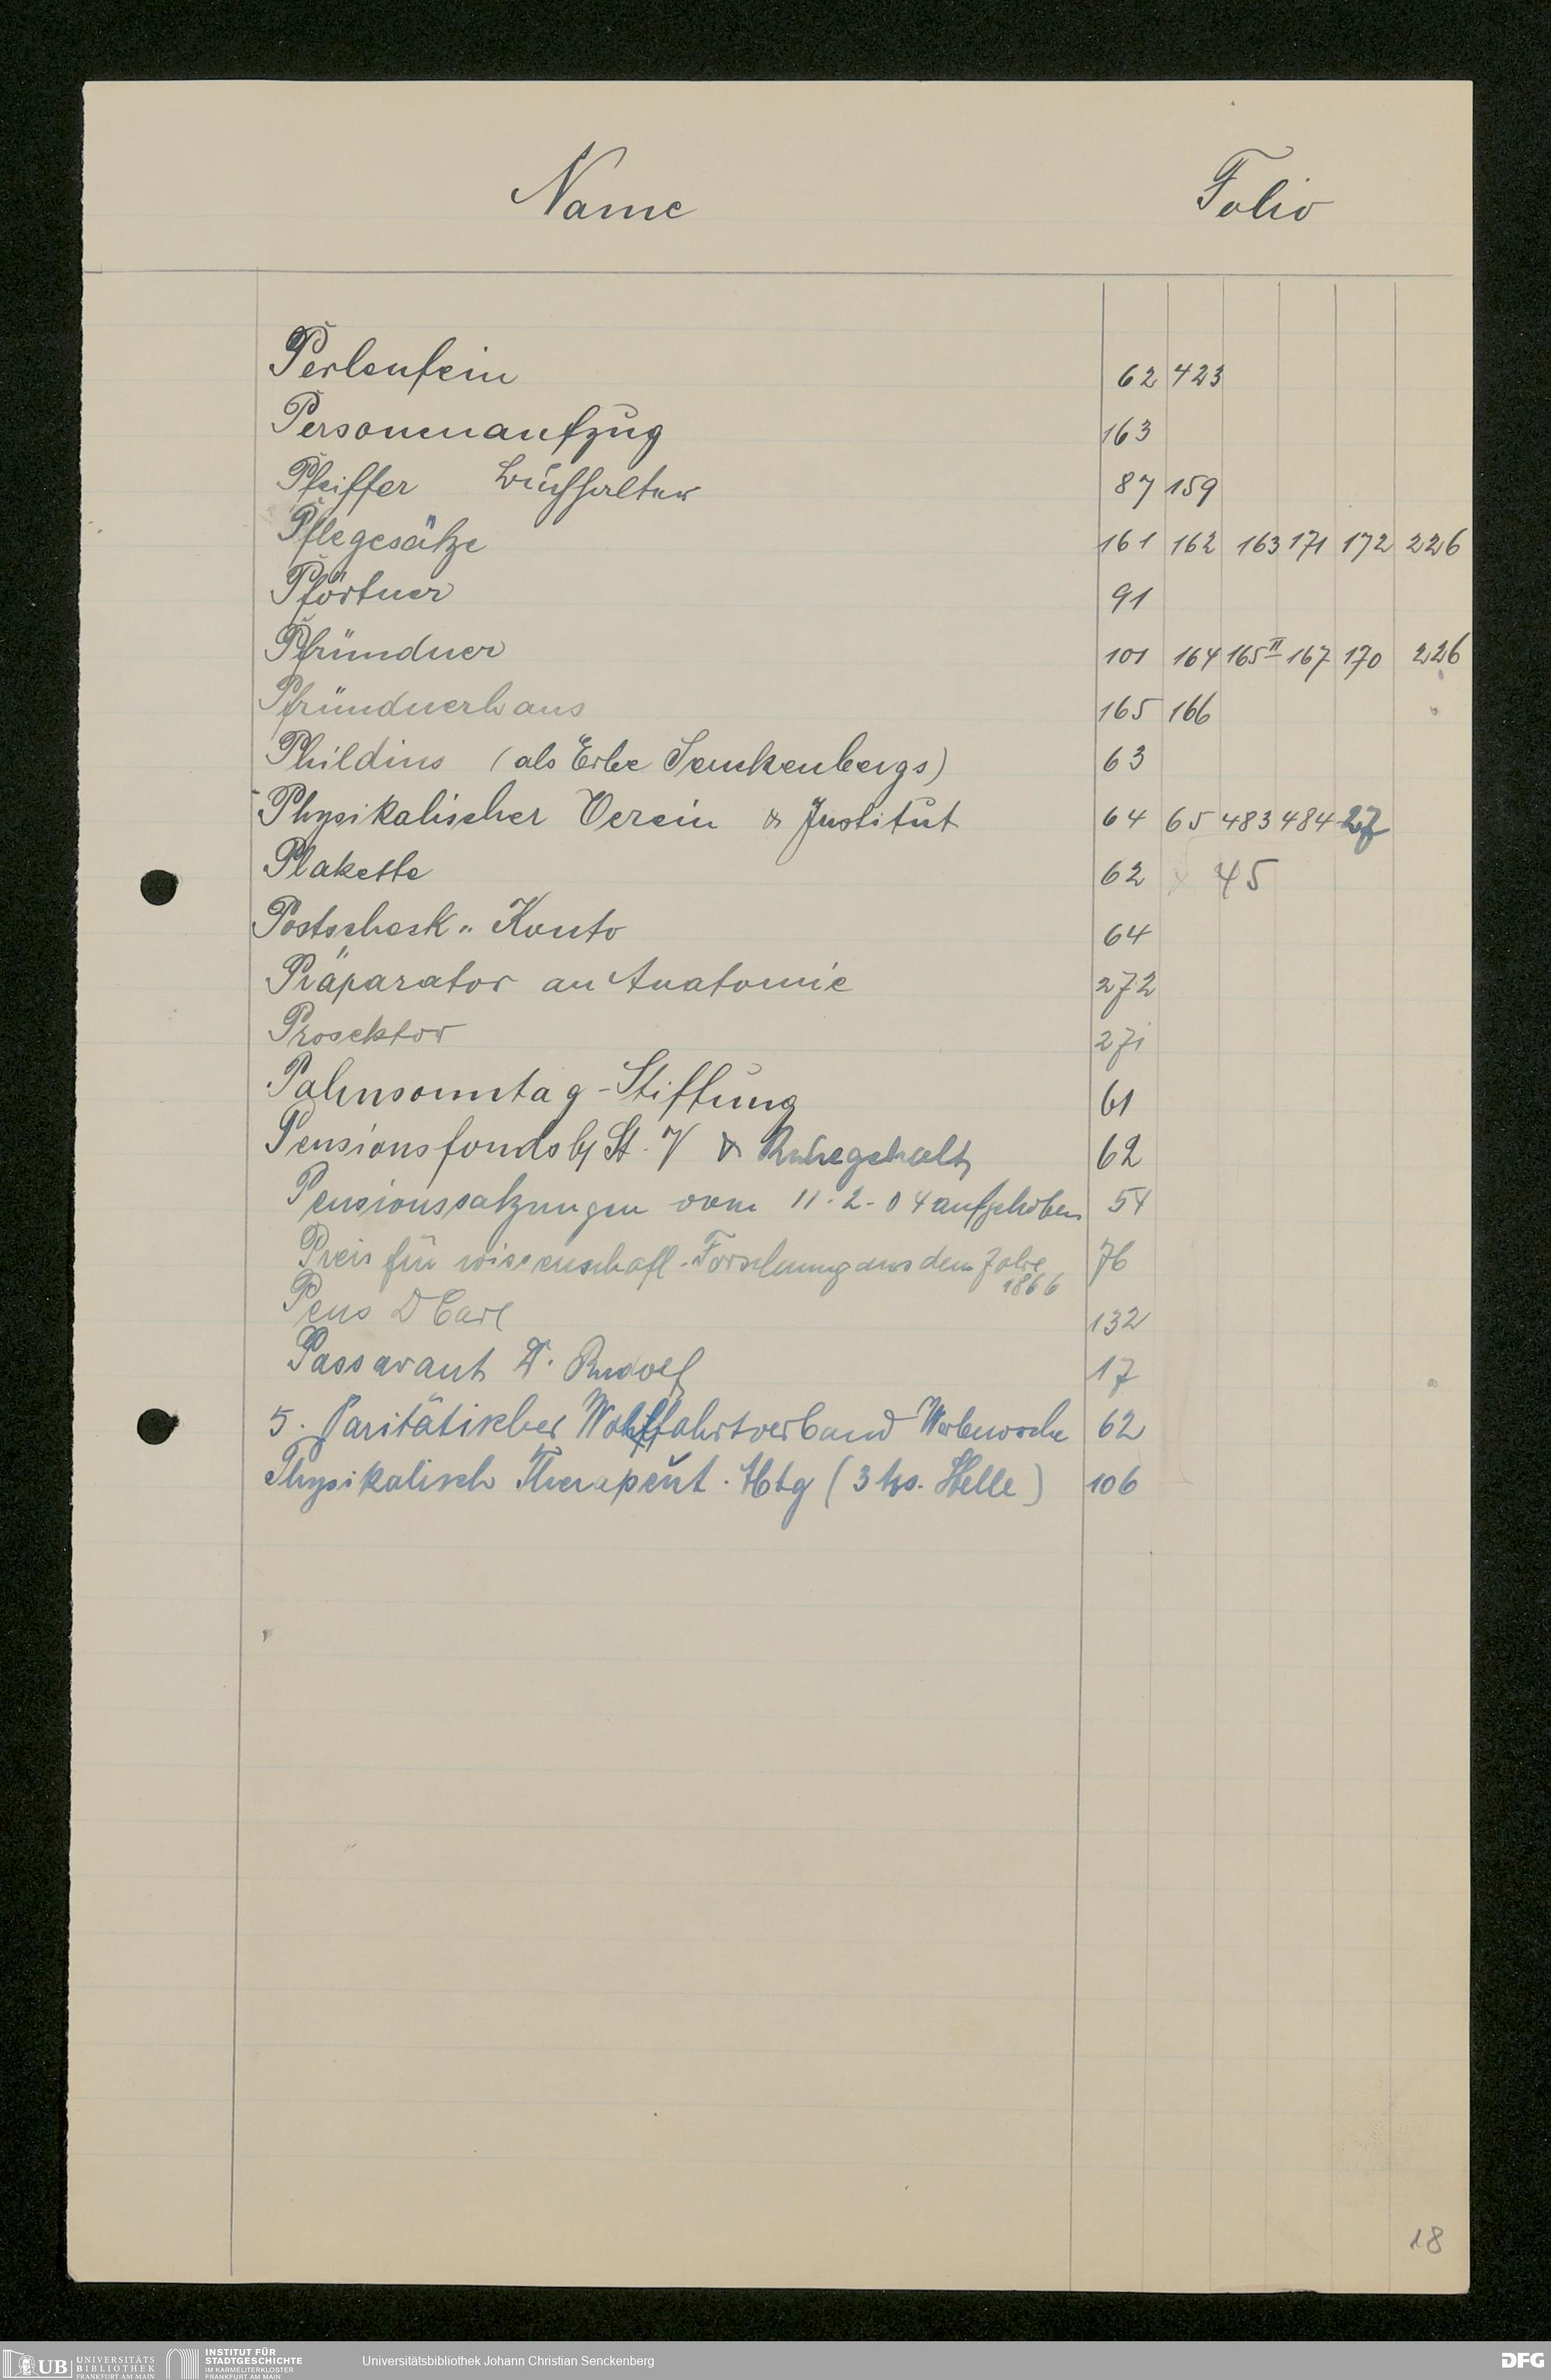 Name Folio
Perlenfein 62 423
Personenaufzug 163
Pfeiffer Buchhalter 87 159
Pflegesätze 161 162 163 171 172 226
Pförtner 91
Pfründner 101 164 165 II 167 170 226
Pfründnerhaus 165 166
Phildius (als Erbe Senckenbergs) 63
Physikalischer Verein & Institut 64 65 483 484 27
Plakette 62 45
Postscheck " Konto 64
Präparator an Anatomie 272
Prosektor 271
Palmsonntag-Stiftung 61
Pensionsfonds St. V & Ruhegehalt 62
Pensionssatzungen vom 11.2.04 aufgehoben 54
Preis für wissenschaftl. Forschung aus dem Jahre 76
1866
Pens D Carl 132
Passavant Dr. Rudolf 17
5. Paritätischer Wohlfahrtverband Werbewoche 62
Physikalisch Therapeut. Abtg (3 hs. Stelle) 106
18
UB UNIVERSITÄTS
BIBLIOTHEK
FRANKFURT AM MAIN
INSTITUT FÜR
STADTGESCHICHTE
IM KARMELITERKLOSTER
FRANKFURT AM MAIN
Universitätsbibliothek Johann Christian Senckenberg
DFG